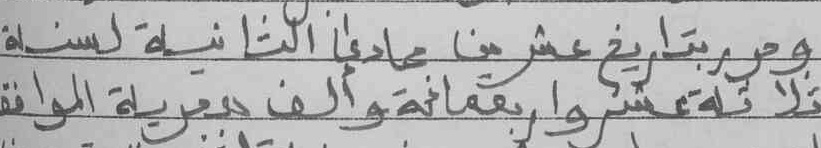 وحرر بتاريخ عشرين جمادى الثانية لسنة
ثلاثة عشر وأربعمائة وألف هجرية الموافق